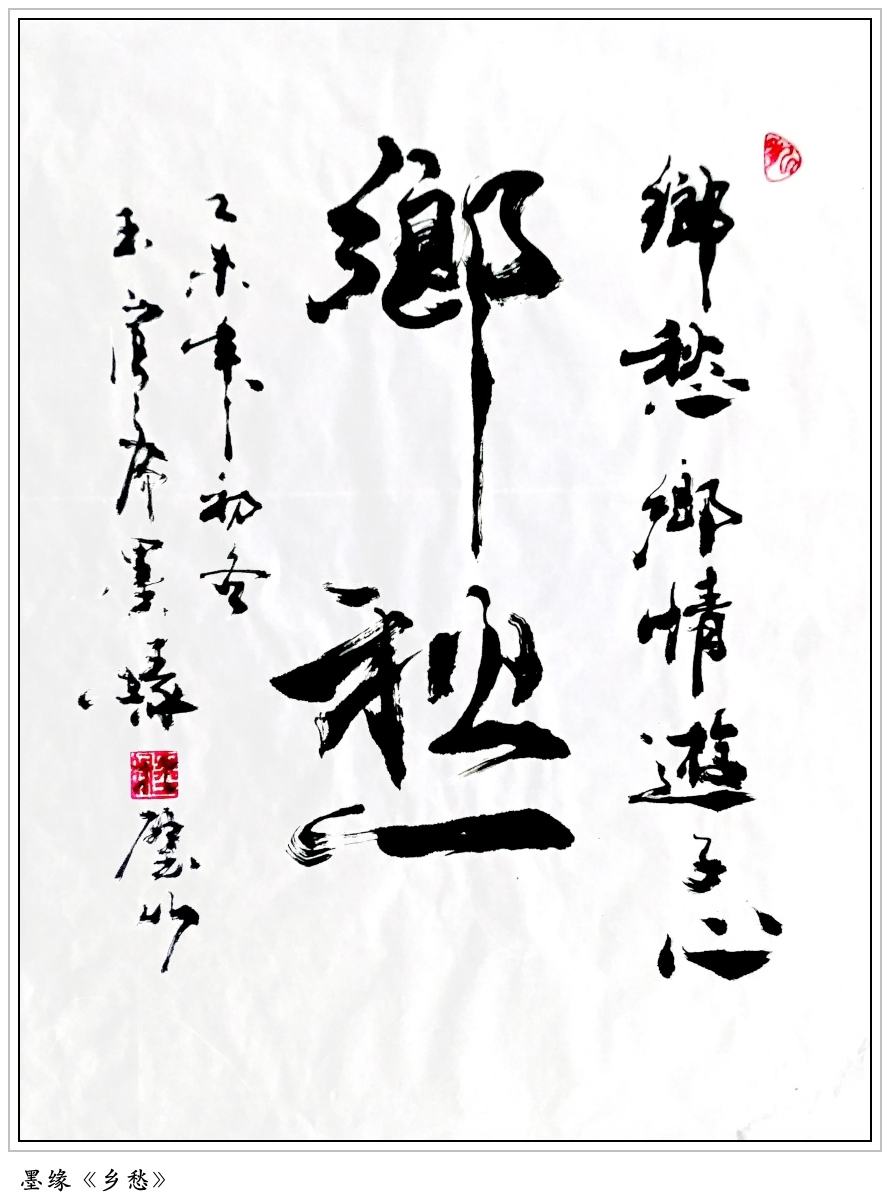 鄉愁鄉情遊子心
鄉愁
乙未年初冬
玉
齋墨緣
墨缘《乡愁》